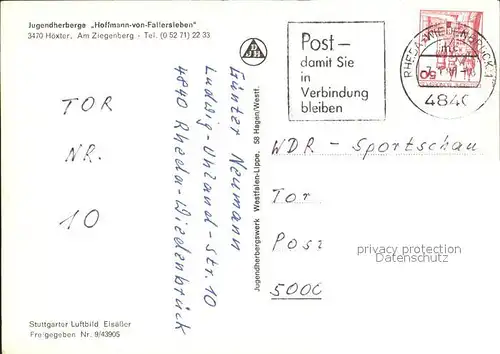 Jugendherberge „Hoffmann-von-Fallersleben"
3470 Höxter, Am Ziegenberg - Tel. (0 52 71) 22 33
TOR
NR.
10
Stuttgarter Luftbild Elsäßer
Freigegeben Nr. 9/43905
Günter Neumann
Ludwig-Uhland-Str. 10
4840 Rheda-Wiedenbrück
Jugendherbergswerk Westfalen-Lippe, 58 Hagen/Westf.
DJH
Post –
damit Sie
in
Verbindung
bleiben
RHEDA-WIEDENBRÜCK 1
4840
50
WDR - Sportschau
Tor
Post
5000
privacy protection
watermark